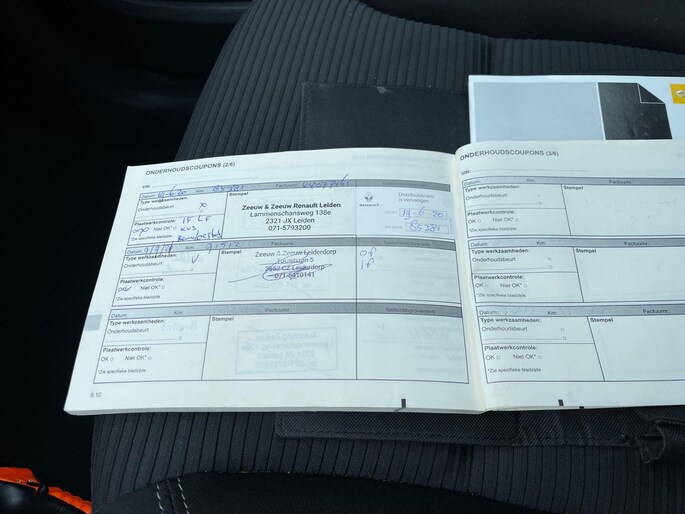 ONDERHOUDSCOUPONS (2/6)
VIN:
Datum: 19-6-20 Km: 85381 Factuurnr.:
Type werkzaamheden:
Onderhoudsbeurt
Plaatwerkcontrole:
OK Niet OK*
*Zie specifieke bladzijde
IF LF
Stempel
Zeeuw & Zeeuw Renault Leiden
Lammenschansweg 138e
2321 JX Leiden
071-5793200
RENAULT
Distributieriem
is vervangen
19-6-20
85381
Datum: Km: Factuurnr.:
Type werkzaamheden:
Onderhoudsbeurt V
Plaatwerkcontrole:
OK Niet OK*
*Zie specifieke bladzijde
Stempel
Zeeuw & Zeeuw Leiderdorp
Touwbaan 5
2352 CZ Leiderdorp
071-5410141
of
if
Datum: Km: Factuurnr.:
Type werkzaamheden:
Onderhoudsbeurt
Plaatwerkcontrole:
OK Niet OK*
*Zie specifieke bladzijde
Stempel
6.10
ONDERHOUDSCOUPONS (3/6)
VIN:
Datum: Km: Factuurnr.:
Type werkzaamheden:
Onderhoudsbeurt
Plaatwerkcontrole:
OK Niet OK*
*Zie specifieke bladzijde
Stempel
Datum: Km: Factuurnr.:
Type werkzaamheden:
Onderhoudsbeurt
Plaatwerkcontrole:
OK Niet OK*
*Zie specifieke bladzijde
Stempel
Datum: Km: Factuurnr.:
Type werkzaamheden:
Onderhoudsbeurt
Plaatwerkcontrole:
OK Niet OK*
*Zie specifieke bladzijde
Stempel